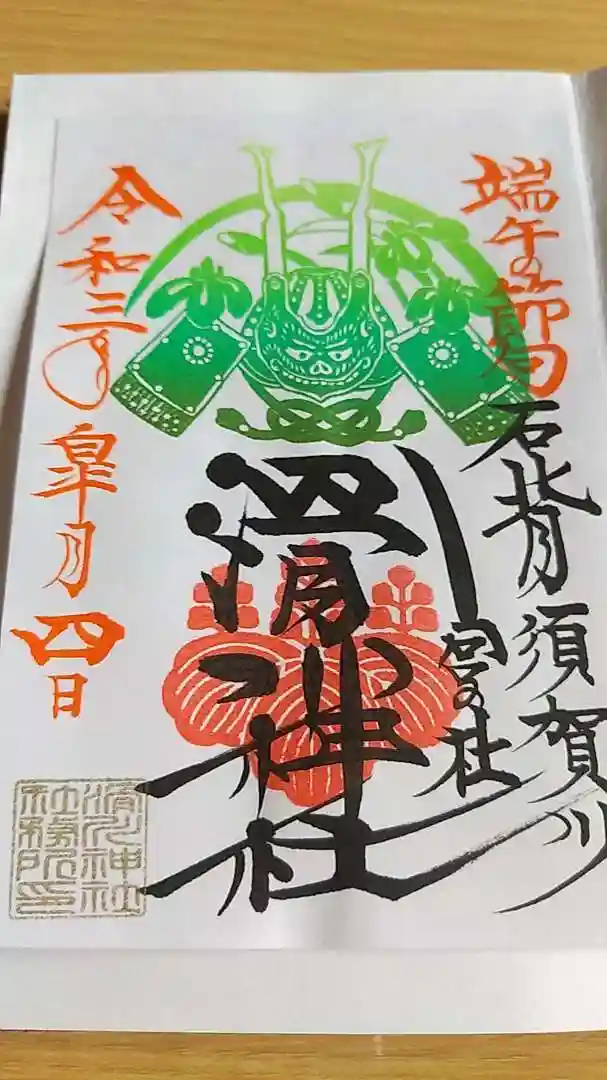 端午の節句
石背 須賀川
宮の社
滑川神社
令和三年
皐月四日
滑川神社
社務所印